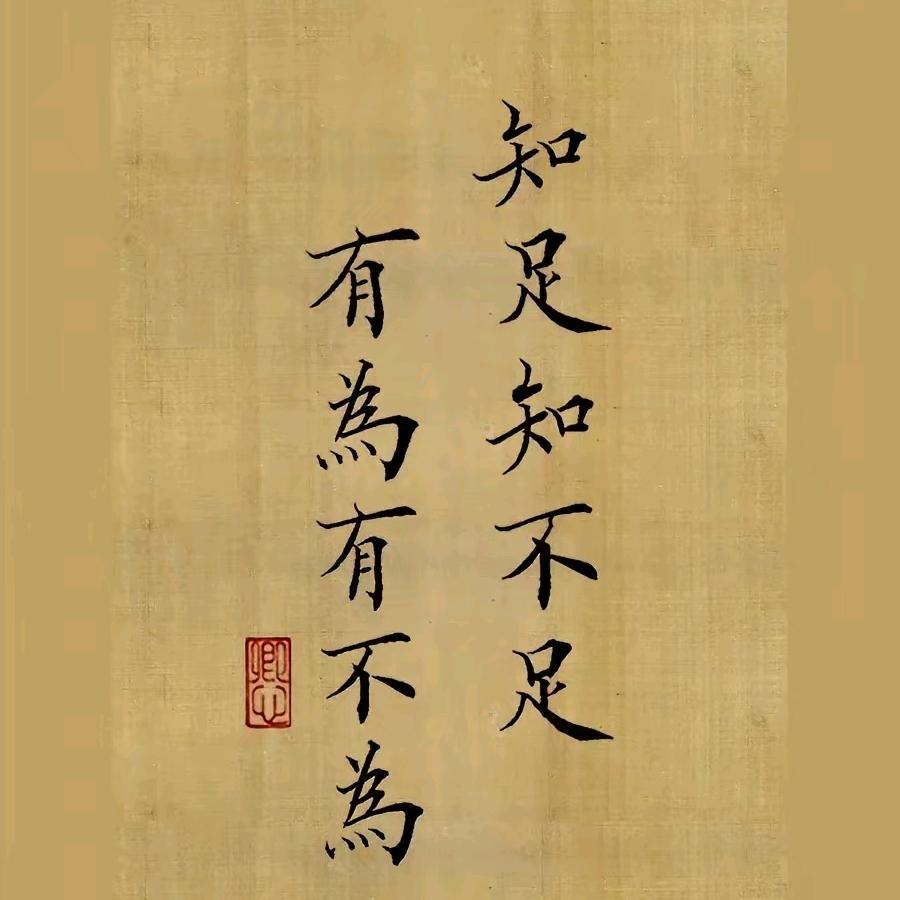 知足知不足
有為有不為